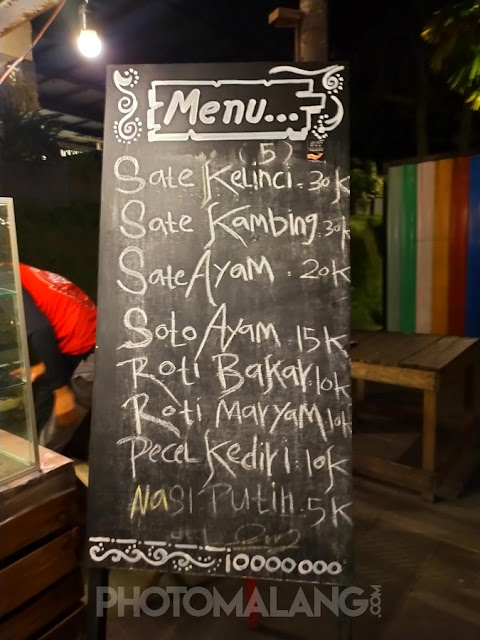 Menu...
(5)
Sate Kelinci. 30K
Sate Kambing. 30K
Sate Ayam. 20K
Soto Ayam. 15K
Roti Bakar. 10K
Roti Maryam 10K
Pecel Kediri. 10K
Nasi Putih. 5K
10000000
PHOTOMALANG.COM